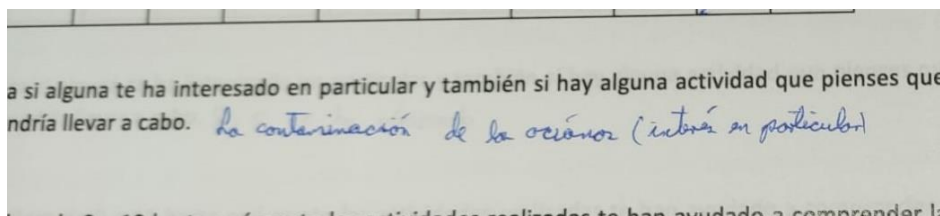 a si alguna te ha interesado en particular y también si hay alguna actividad que pienses que
ndría llevar a cabo. La contaminación de la ociónor (interés en particular)
han ayudado a comprender l